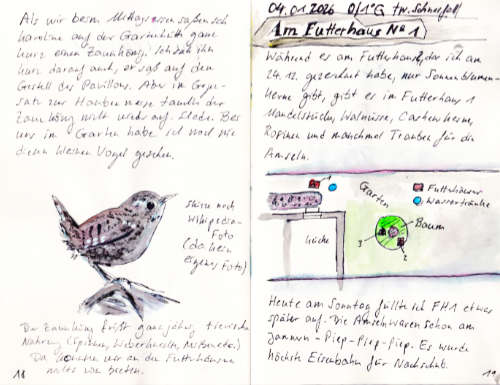 Als wir beim Mittagessen saßen sah
Karoline auf der Gartenhütte ganz
kurz einen Zaunkönig. Ich sah ihn
kurz darauf auch, er saß auf dem
Gestell des Pavillons. Aber im Gegen-
satz zur Haubenmeise tauchte der
Zaunkönig nicht wieder auf. Schade. Bei
uns im Garten habe ich noch nie
diesen kleinen Vogel gesehen.
Skizze nach
Wikipedia-
Foto
(da kein
eigenes Foto)
Der Zaunkönig frißt ganzjährig tierische
Nahrung (Spinnen, Weberknechte,
Da können wir an den Futterhäusern
nichts bieten.
18
04.01.2026 0/1°C tw. Schneefall
Am Futterhaus N°1
Während es am Futterhaus 2, das ich am
24.12. gezeichnet habe, nur Sonnenblumen-
kerne gibt, gibt es im Futterhaus 1
Mandelstücke, Walnüsse, Cashewkerne,
Rosinen und manchmal Trauben für die
Amseln.
1
Garten
Futterhäuser
Wassertränke
Küche
Baum
3
2
Heute am Sonntag füllte ich FH1 etwas
später auf. Die Amseln waren schon am
Jammern - Piep-Piep-Piep. Es wurde
höchste Eisenbahn für Nachschub.
19